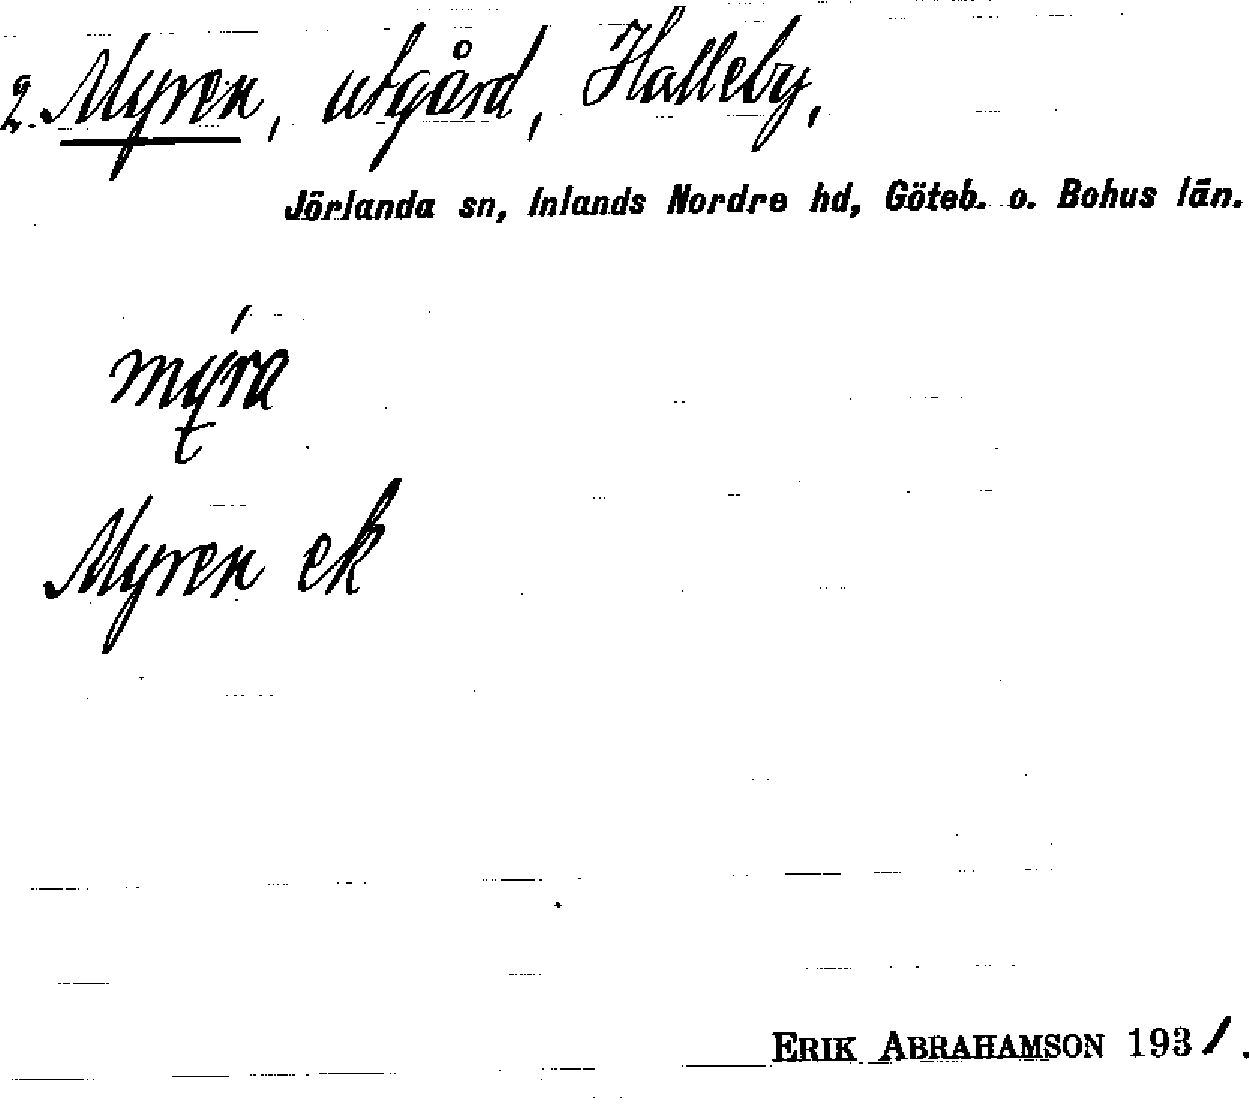 2. Myren, utgård, Halleby,
Jörlanda sn, Inlands Nordre hd, Göteb. o. Bohus län.
mýra
Myren ek
ERIK ABRAHAMSON 1931.